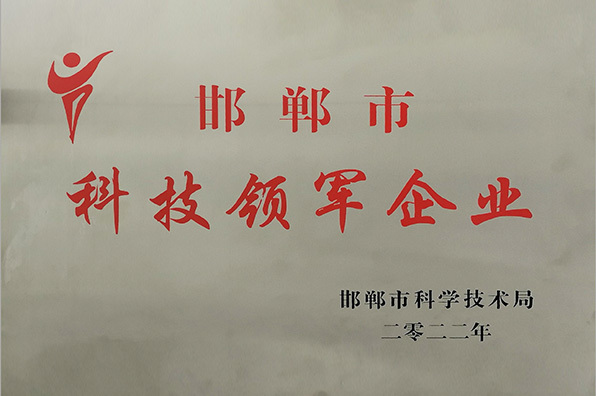 邯郸市
科技领军企业
邯郸市科学技术局
二零二二年